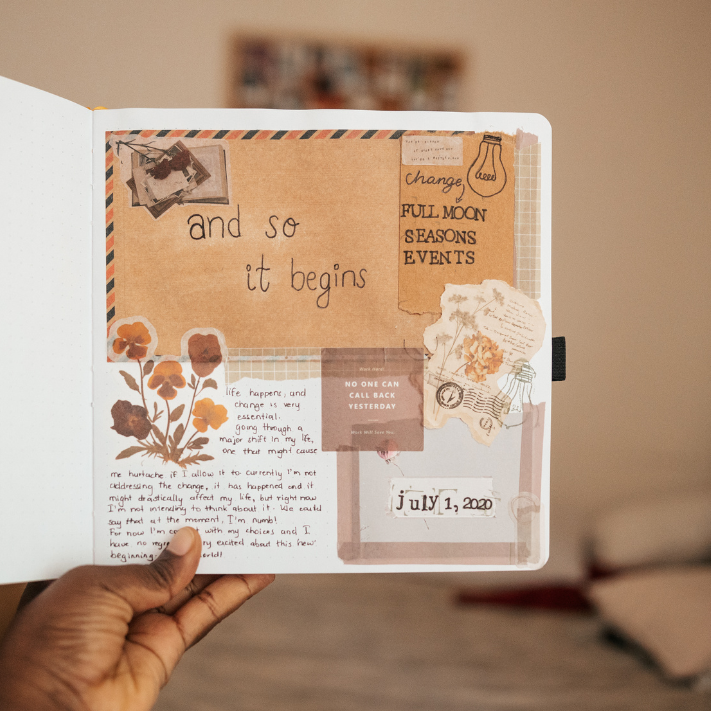 and so
it begins
change,
FULL MOON
SEASONS
EVENTS
NO ONE CAN
CALL BACK
YESTERDAY
life happens, and
change is very
essential.
going through a
major shift in my life,
one that might cause
me hurtache if I allow it to. Currently I'm not
addressing the change, it has happened and it
might drastically affect my life, but right now
I'm not intending to think about it. We could
say that at the moment, I'm numb!
For now I'm with my choices and I
have no excited about this new
beginning
july 1, 2020